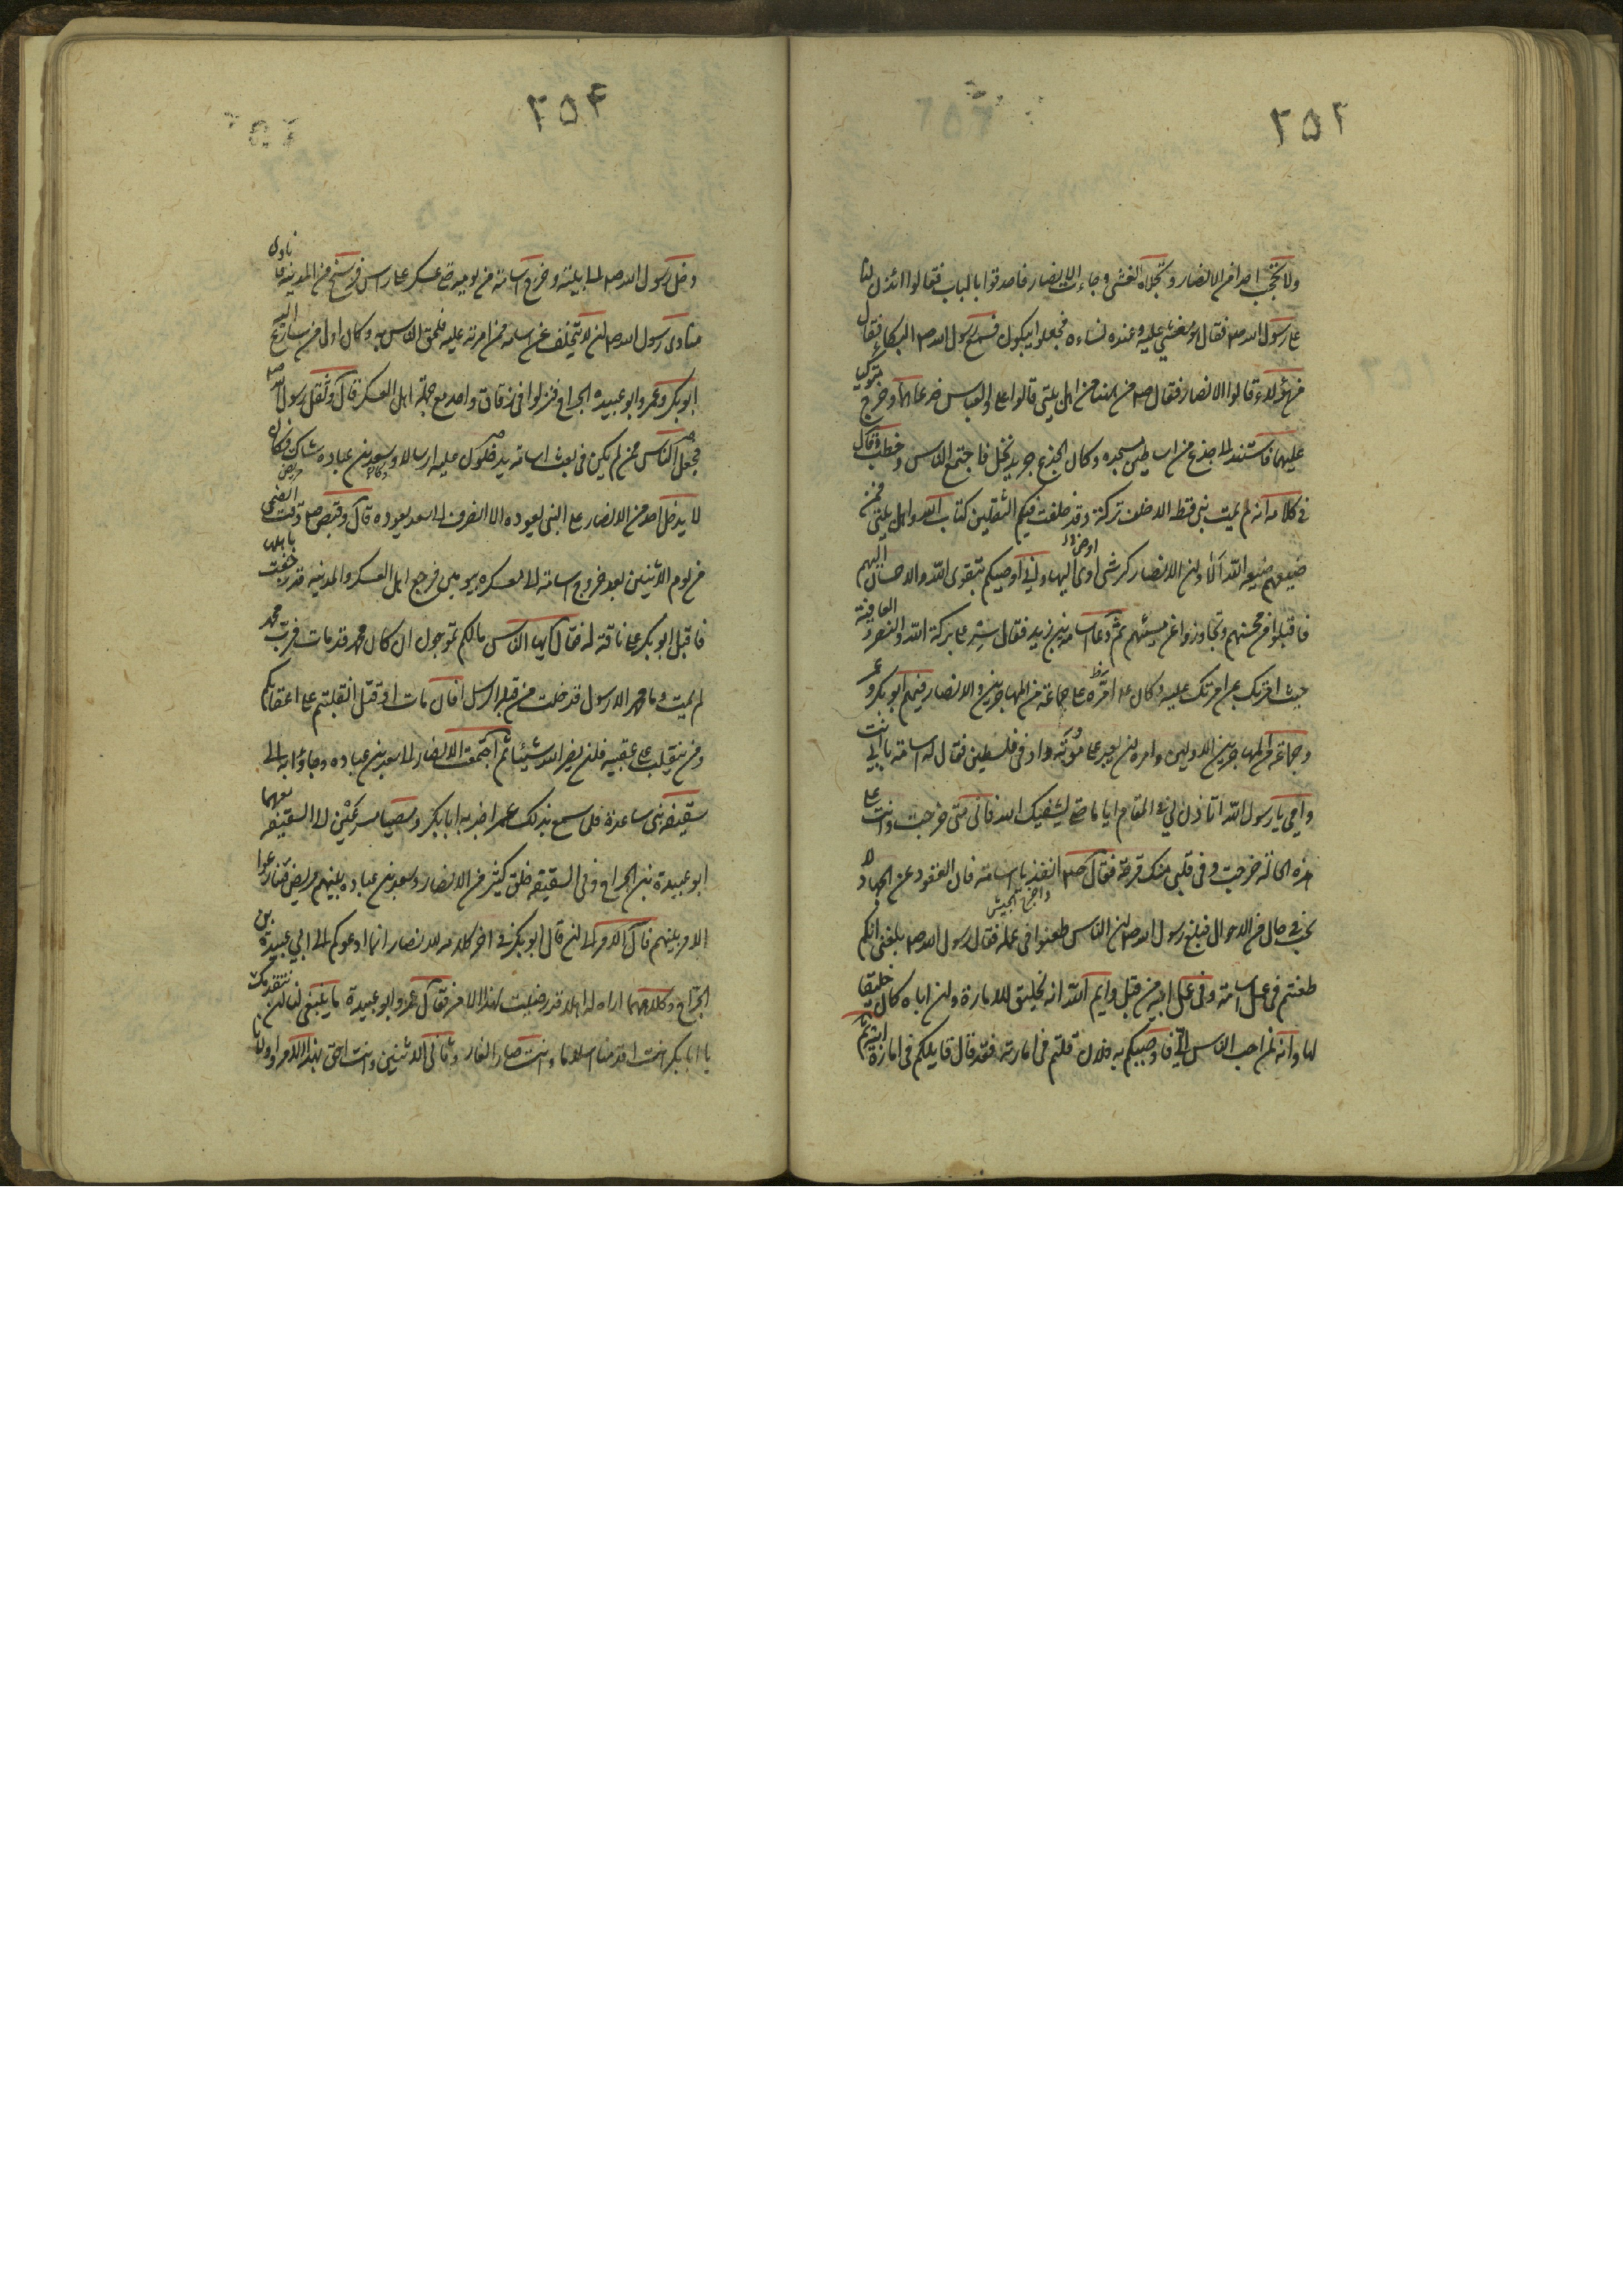 ٢٥٣
ولا تحجب احدا من الانصار وتجلاه الغشي وجاءت الانصار فاحدقوا بالباب فقالوا ائذن لنا
على رسول الله صم فقال هو مغشي عليه وعنده نساءه فجعلوا يبكون فسمع رسول الله صم البكاء فقال
من هؤلاء قالوا الانصار فقال صم من هيهنا من اهل بيتي قالوا علي والعباس فدعاهما وخرج متوكيا
عليهما فاستند الى جذع من اساطين مسجده وكان الجذع جريد نخل فاجتمع الناس وخطب وقال
في كلامه انه لم يمت نبي قط الا خلف تركة وقد خلفت فيكم الثقلين كتاب الله واهل بيتي فمن
ضيعهم ضيعه الله الا وان الانصار كرشي اوى اليها واني اوصيكم بتقوى الله والاحسان اليهم
فاقبلوا من محسنهم وتجاوزوا عن مسيئهم ثم دعا اسامة بن زيد فقال سر على بركة الله والنصر والعافية
حيث امرتك بمن امرتك عليه وكان صم امره على جماعة من المهاجرين والانصار فيهم ابو بكر وعمر
وجماعة من المهاجرين الاولين وامره ان يعبر على موته واد في فلسطين فقال له اسامة بابي انت
وامي يا رسول الله اتاذن لي في المقام اياما حتى يشفيك الله فاني متى خرجت وانت على
هذه الحالة خرجت وفي قلبي منك قرحة فقال صم انفذ يا اسامة فان القعود عن الجهاد لا
يجب في حال من الاحوال فبلغ رسول الله صم ان الناس طعنوا في عمله فقال رسول الله صم بلغني انكم
طعنتم في عمل اسامة وفي عمل ابيه من قبل وايم الله انه لخليق للامارة وان اباه كان خليقا
لها وانه لمن احب الناس الي فاوصيكم به خيرا فلان قلتم في امارته فقد قال قايلكم في امارة ابيه ثم
٢٥٤
دخل رسول الله صم الى بيته وخرج اسامة من يومه حتى عسكر على راس فرسخ من المدينة ونادى
منادى رسول الله صم ان لا يتخلف عن اسامة ممن امرته عليه فلحق الناس به وكان اول من سارع اليه
ابو بكر وعمر وابو عبيدة الجراح فنزلوا في زقاق واحد مع جملة اهل العسكر قال وثقل رسول الله صم
فجعل الناس ممن لم يكن في بعث اسامة يدخلون عليه ارسالا وسعد بن عبادة شاك فكان
لا يدخل احد من الانصار على النبي يعوده الا انصرف الى سعد يعوده قال وقبض صم وقت الضحى
من يوم الاثنين بعد خروج اسامة الى معسكره بيومين فرجع اهل العسكر والمدينة قد رجفت باهلها
فاقبل ابو بكر على ناقة له فقال ايها الناس مالكم تموجون ان كان محمد قد مات فرب محمد
لم يمت وما محمد الا رسول قد خلت من قبله الرسل افان مات او قتل انقلبتم على اعقابكم
ومن ينقلب على عقبيه فلن يضر الله شيئا ثم اجتمعت الانصار الى سعد بن عبادة وجاؤا به الى
سقيفة بني ساعدة فلما سمع بذلك عمر اخبر به ابا بكر ومضيا مسرعين الى السقيفة معهما
ابو عبيدة بن الجراح وفي السقيفة خلق كثير من الانصار وسعد بن عبادة بينهم مريض فتنازعوا
الامر بينهم فآل الامر الى ان قال ابو بكر في اخر كلامه للانصار انما ادعوكم الى ابي عبيدة بن
الجراح وكلاهما اراه له اهلا قد رضيت لهذا الامر فقال عمر وابو عبيدة ما ينبغي لنا ان نتقدمك
يا ابا بكر انت اقدمنا اسلاما وانت صاحب الغار وثاني الاثنين وانت احق بهذا الامر واولانا